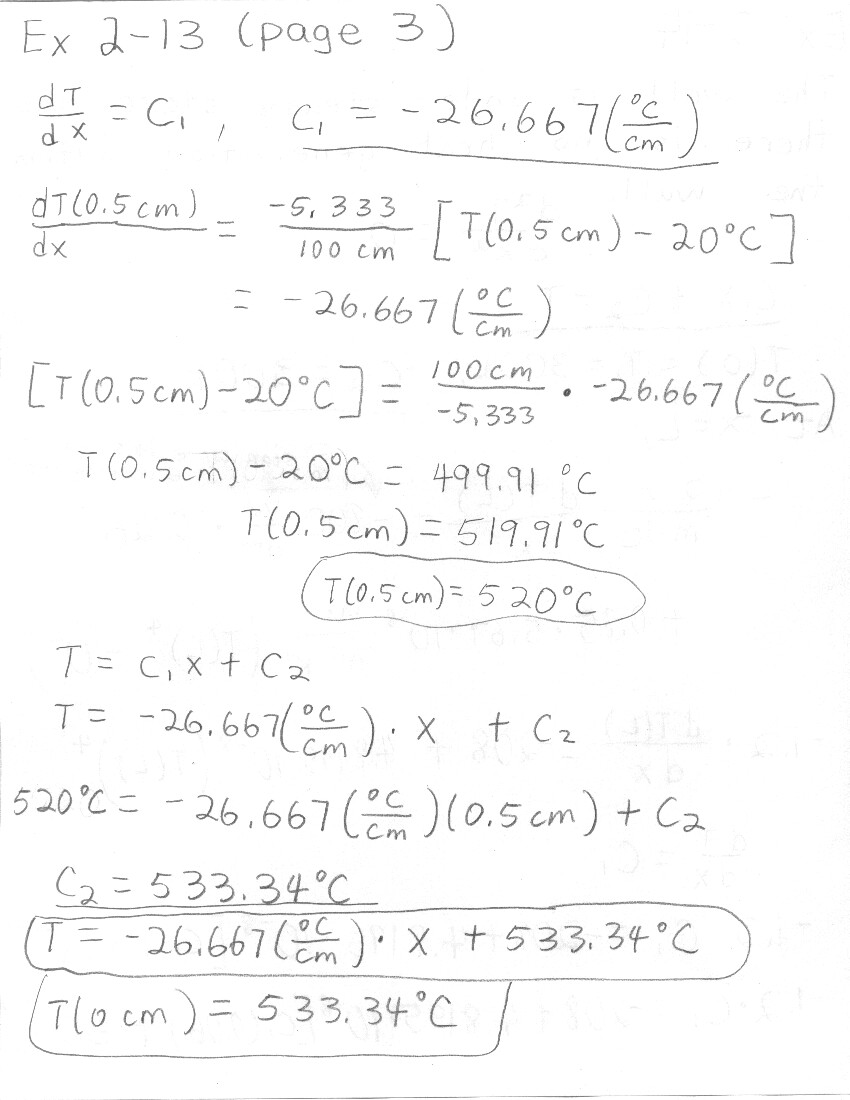 Ex 2-13 (page 3)
dT/dx = C₁ , C₁ = -26.667(°C/cm)
dT(0.5 cm)/dx = -5.333/100 cm [T(0.5 cm) - 20°C]
= -26.667(°C/cm)
[T(0.5cm)-20°C] = 100cm/-5.333 · -26.667(°C/cm)
T(0.5cm)-20°C = 499.91 °C
T(0.5cm) = 519.91°C
T(0.5cm) = 520°C
T = C₁x + C₂
T = -26.667(°C/cm) · x + C₂
520°C = -26.667(°C/cm)(0.5cm) + C₂
C₂ = 533.34°C
T = -26.667(°C/cm) · x + 533.34°C
T(0 cm) = 533.34°C